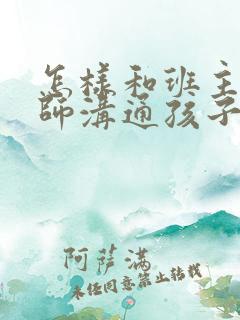 怎样和班主
師溝通孩子
阿萨满
未经同意禁止转载